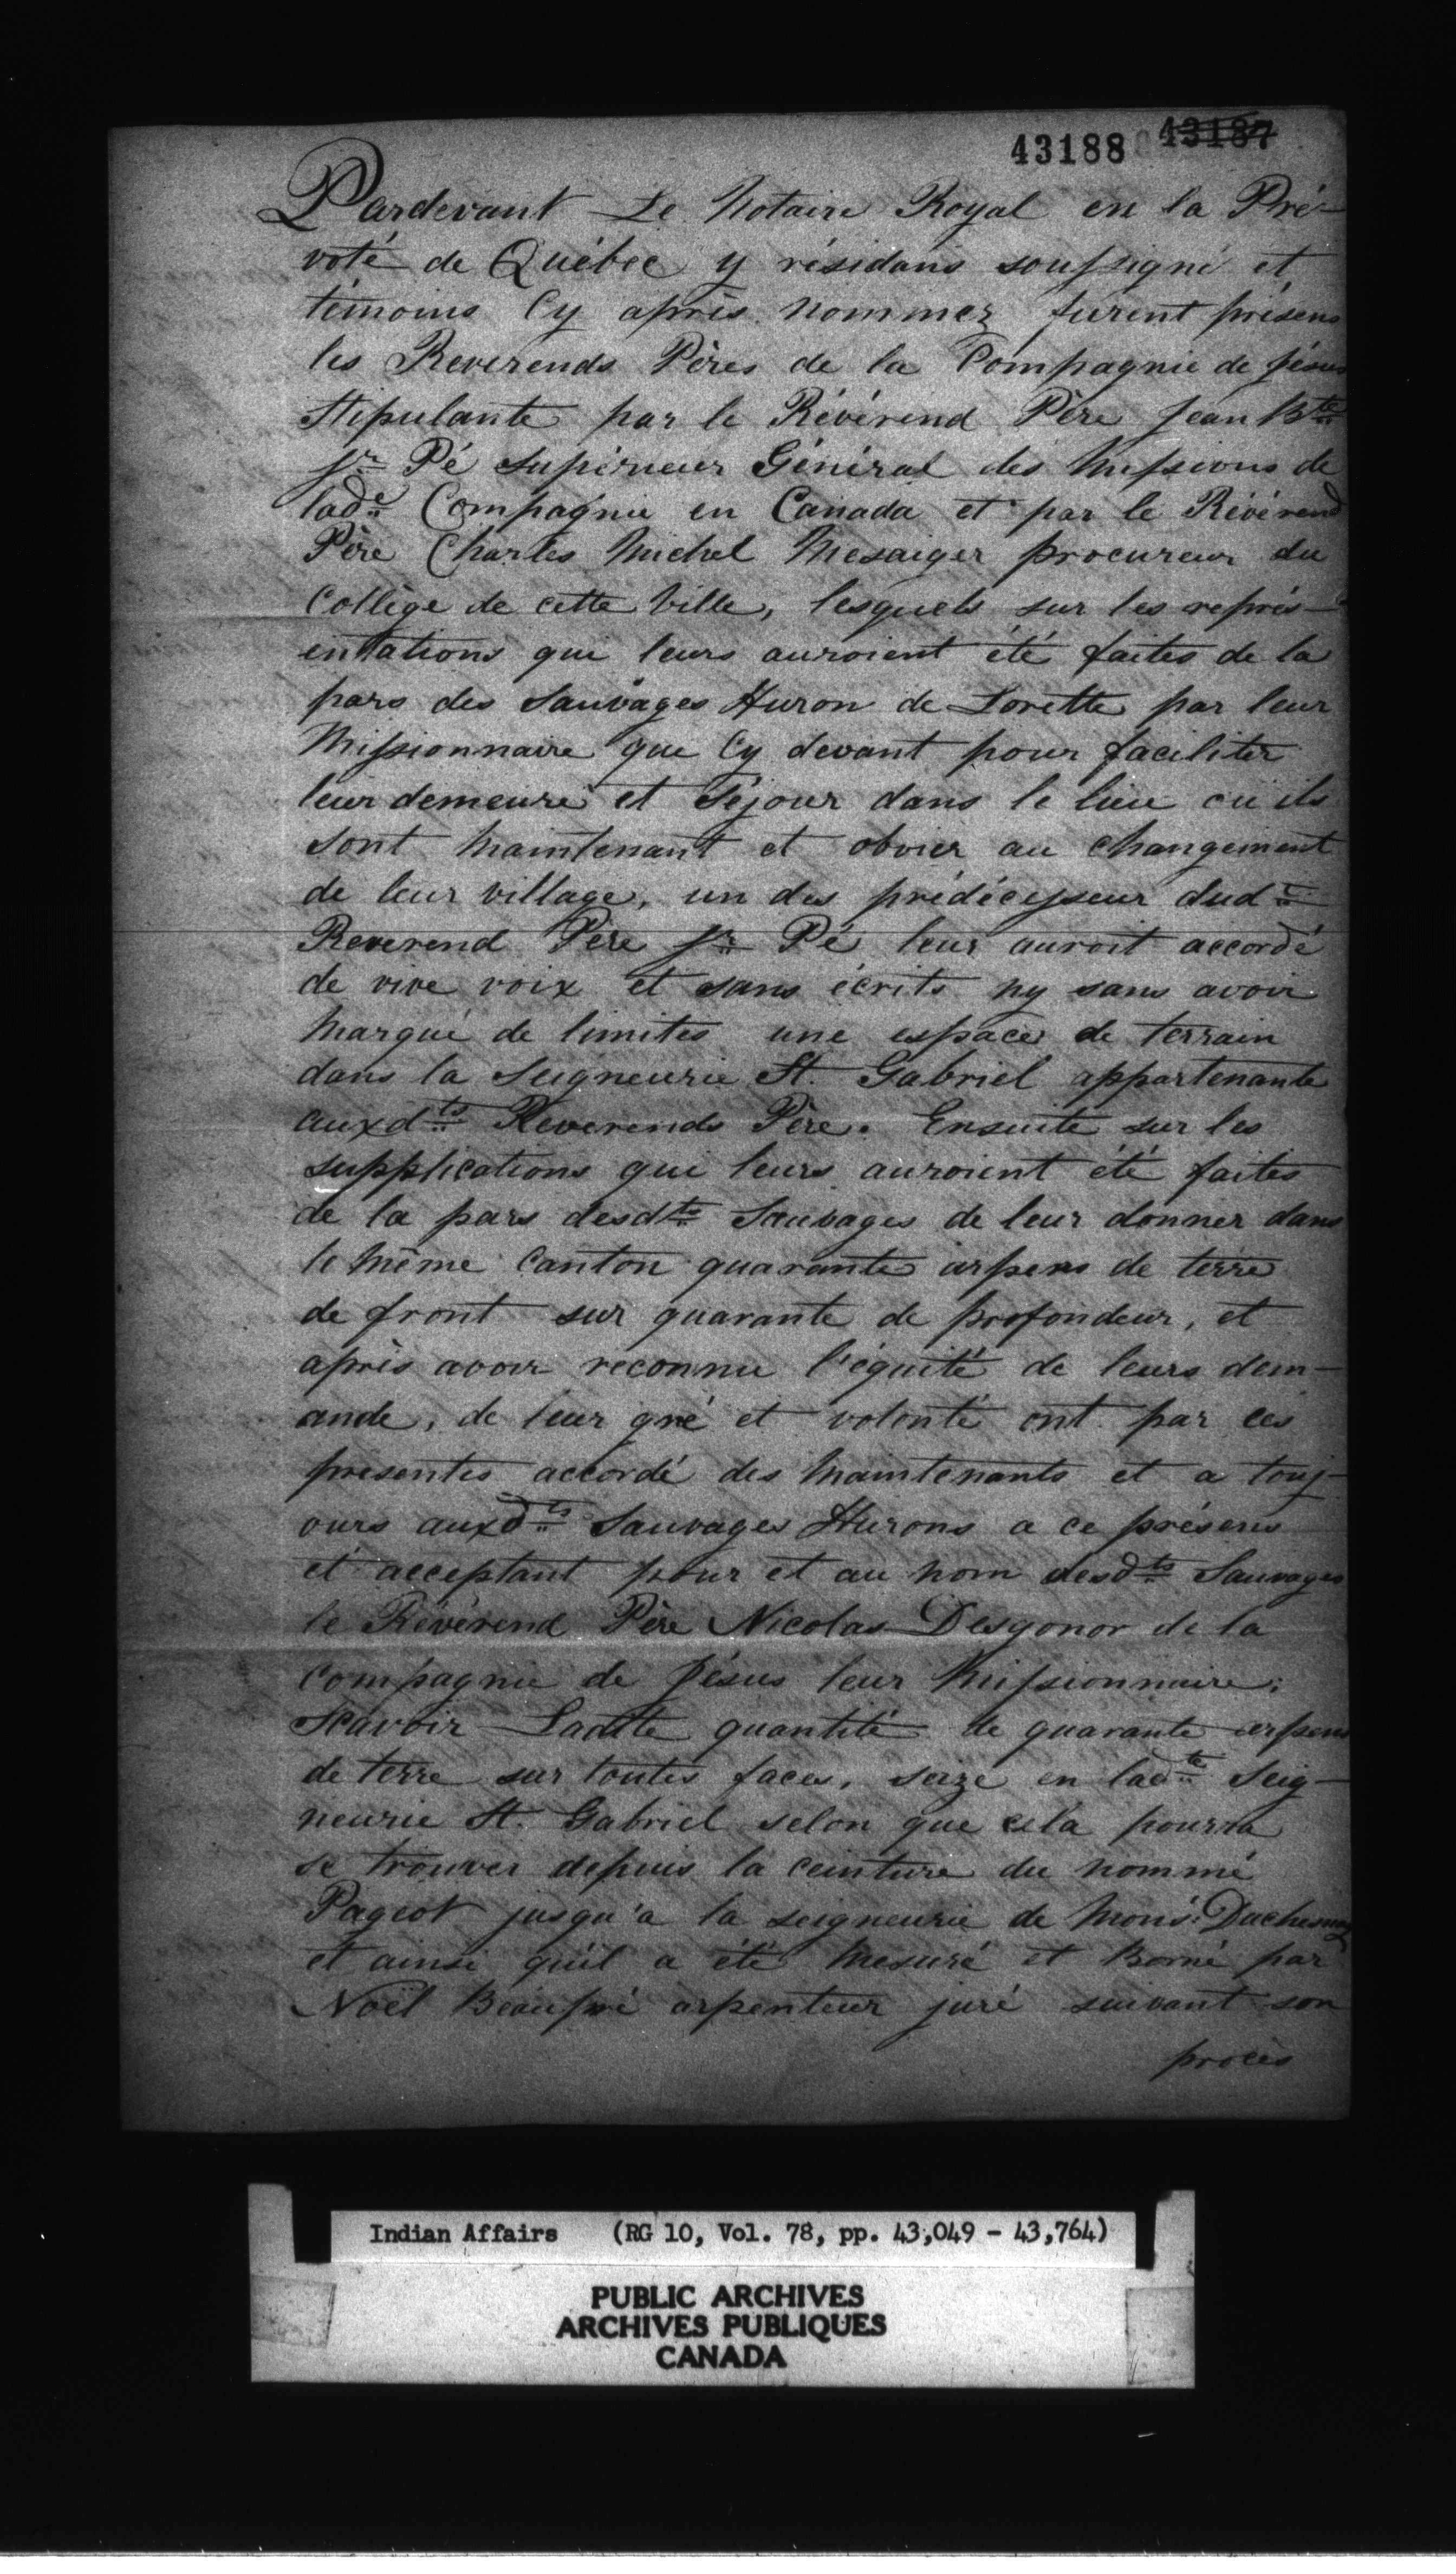 43188 43187
Pardevant Le Notaire Royal en la Pré-
voté de Québec y résidans soussigné et
témoins Cy après nommez furent présens
les Reverends Pères de la Compagnie de Jésus
Stipulante par le Révérend Père Jean Bte
Jr Pé supérieur Général des Missions de
lade Compagnie en Canada et par le Révérend
Père Charles Michel Mesaiger procureur du
Collège de cette Ville, lesquels sur les représ-
entations qui leurs auroient été faites de la
pars des Sauvages Huron de Lorette par leur
Missionnaire que Cy devant pour faciliter
leur demeure et Séjour dans le lieu où ils
sont Maintenant et obvier au changement
de leur village, un des prédécesseur dud.t
Reverend Père Jr Pé leur auroit accordé
de vive voix et sans écrits ny sans avoir
Marqué de limites une espace de terrain
dans la Seigneurie St. Gabriel appartenante
auxdts Reverends Père. Ensuite sur les
supplications qui leurs auroient été faites
de la pars desdts Sauvages de leur donner dans
le Même Canton quarante arpens de terre
de front sur quarante de profondeur, et
après avoir reconnu l'équité de leurs dem-
ande, de leur gré et volonté ont par ces
presentes accordé des Maintenants et a touj-
ours auxdts Sauvages Hurons a ce présens
et acceptant pour et au nom desdts Sauvages
le Révérend Père Nicolas Desgonor de la
Compagnie de Jésus leur Missionnaire;
Scavoir Ladite quantité de quarante arpens
de terre sur toutes faces, seize en ladte Seig-
neurie St. Gabriel selon que cela pourra
se trouver depuis la ceinture du nommé
Pageot jusqu'a la seigneurie de Monsr. Duchesnay
et ainsi qu'il a été Mesuré et Borné par
Noël Beaupré arpenteur juré suivant son
procès
Indian Affairs (RG 10, Vol. 78, pp. 43,049 - 43,764)
PUBLIC ARCHIVES
ARCHIVES PUBLIQUES
CANADA